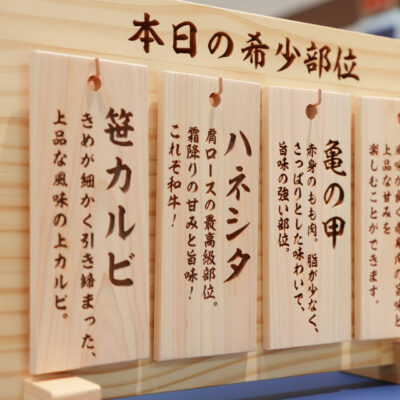 本日の希少部位
笹カルビ
きめが細かく引き締まった、
上品な風味の上カルビ。
ハネシタ
肩ロースの最高級部位。
霜降りの甘みと旨味！
これぞ和牛！
亀の甲
赤身のもも肉。脂が少なく、
さっぱりとした味わいで、
旨味の強い部位。
上品な甘みを
楽しむことができます。